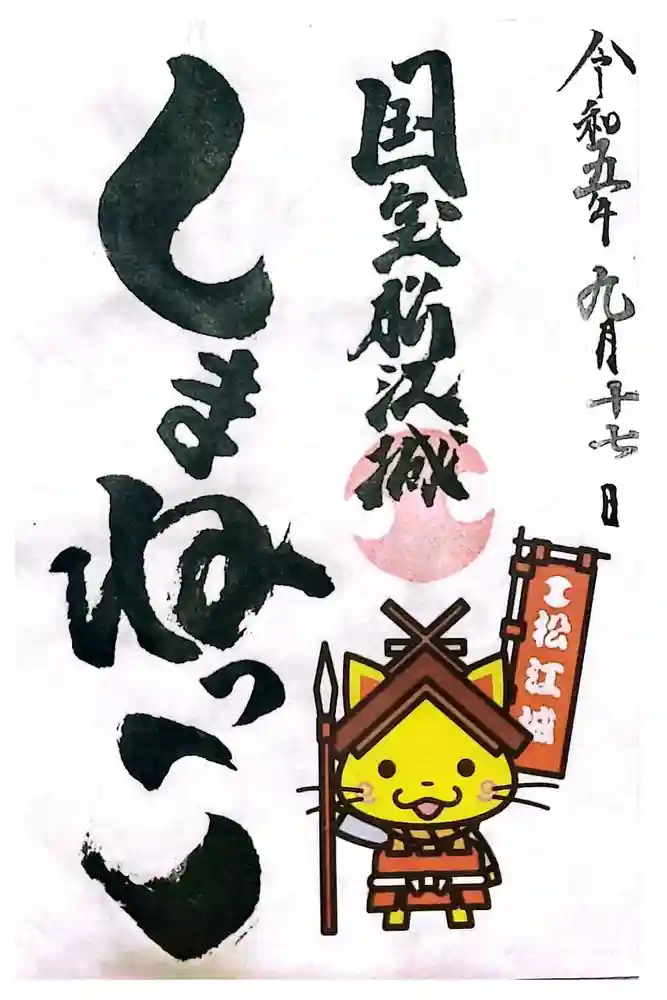 令和五年九月十七日
国宝松江城
しまねっこ
松江城